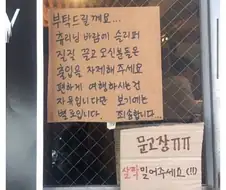 부탁드릴께요...
츄리닝 바람에 슬리퍼
질질 끌고 오신분들은
출입을 자제해 주세요
편하게 여행하시는건
자유입니다만 보기에는
별로입니다. 죄송합니다...
문고장ㅠㅠ
살짝 밀어주세요(!!)